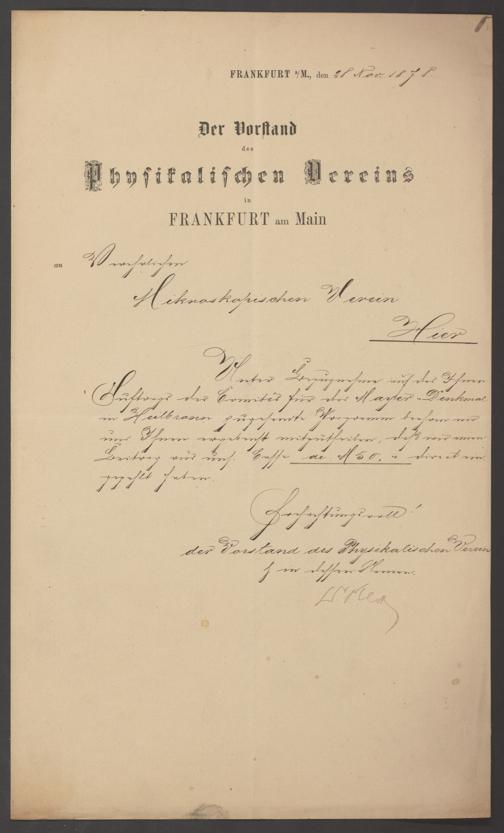 FRANKFURT a/M., den 28 Nov. 1878.
Der Vorstand
des
Physikalischen Vereins
in
FRANKFURT am Main
an Verehrlichen
Mikroskopischen Verein
Hier
Unter Bezugnahme auf das Ihnen
Auftrags des Comités für das Mayer-Denkmal
in Heilbronn zugesandte Programm beehren wir
uns Ihnen ergebenst mitzutheilen, daß wir einen
Beitrag aus uns. Casse de M 50. - direct ein
gezahlt haben.
Hochachtungsvoll!
der Vorstand des Physikalischen Verein
in dessen Namen